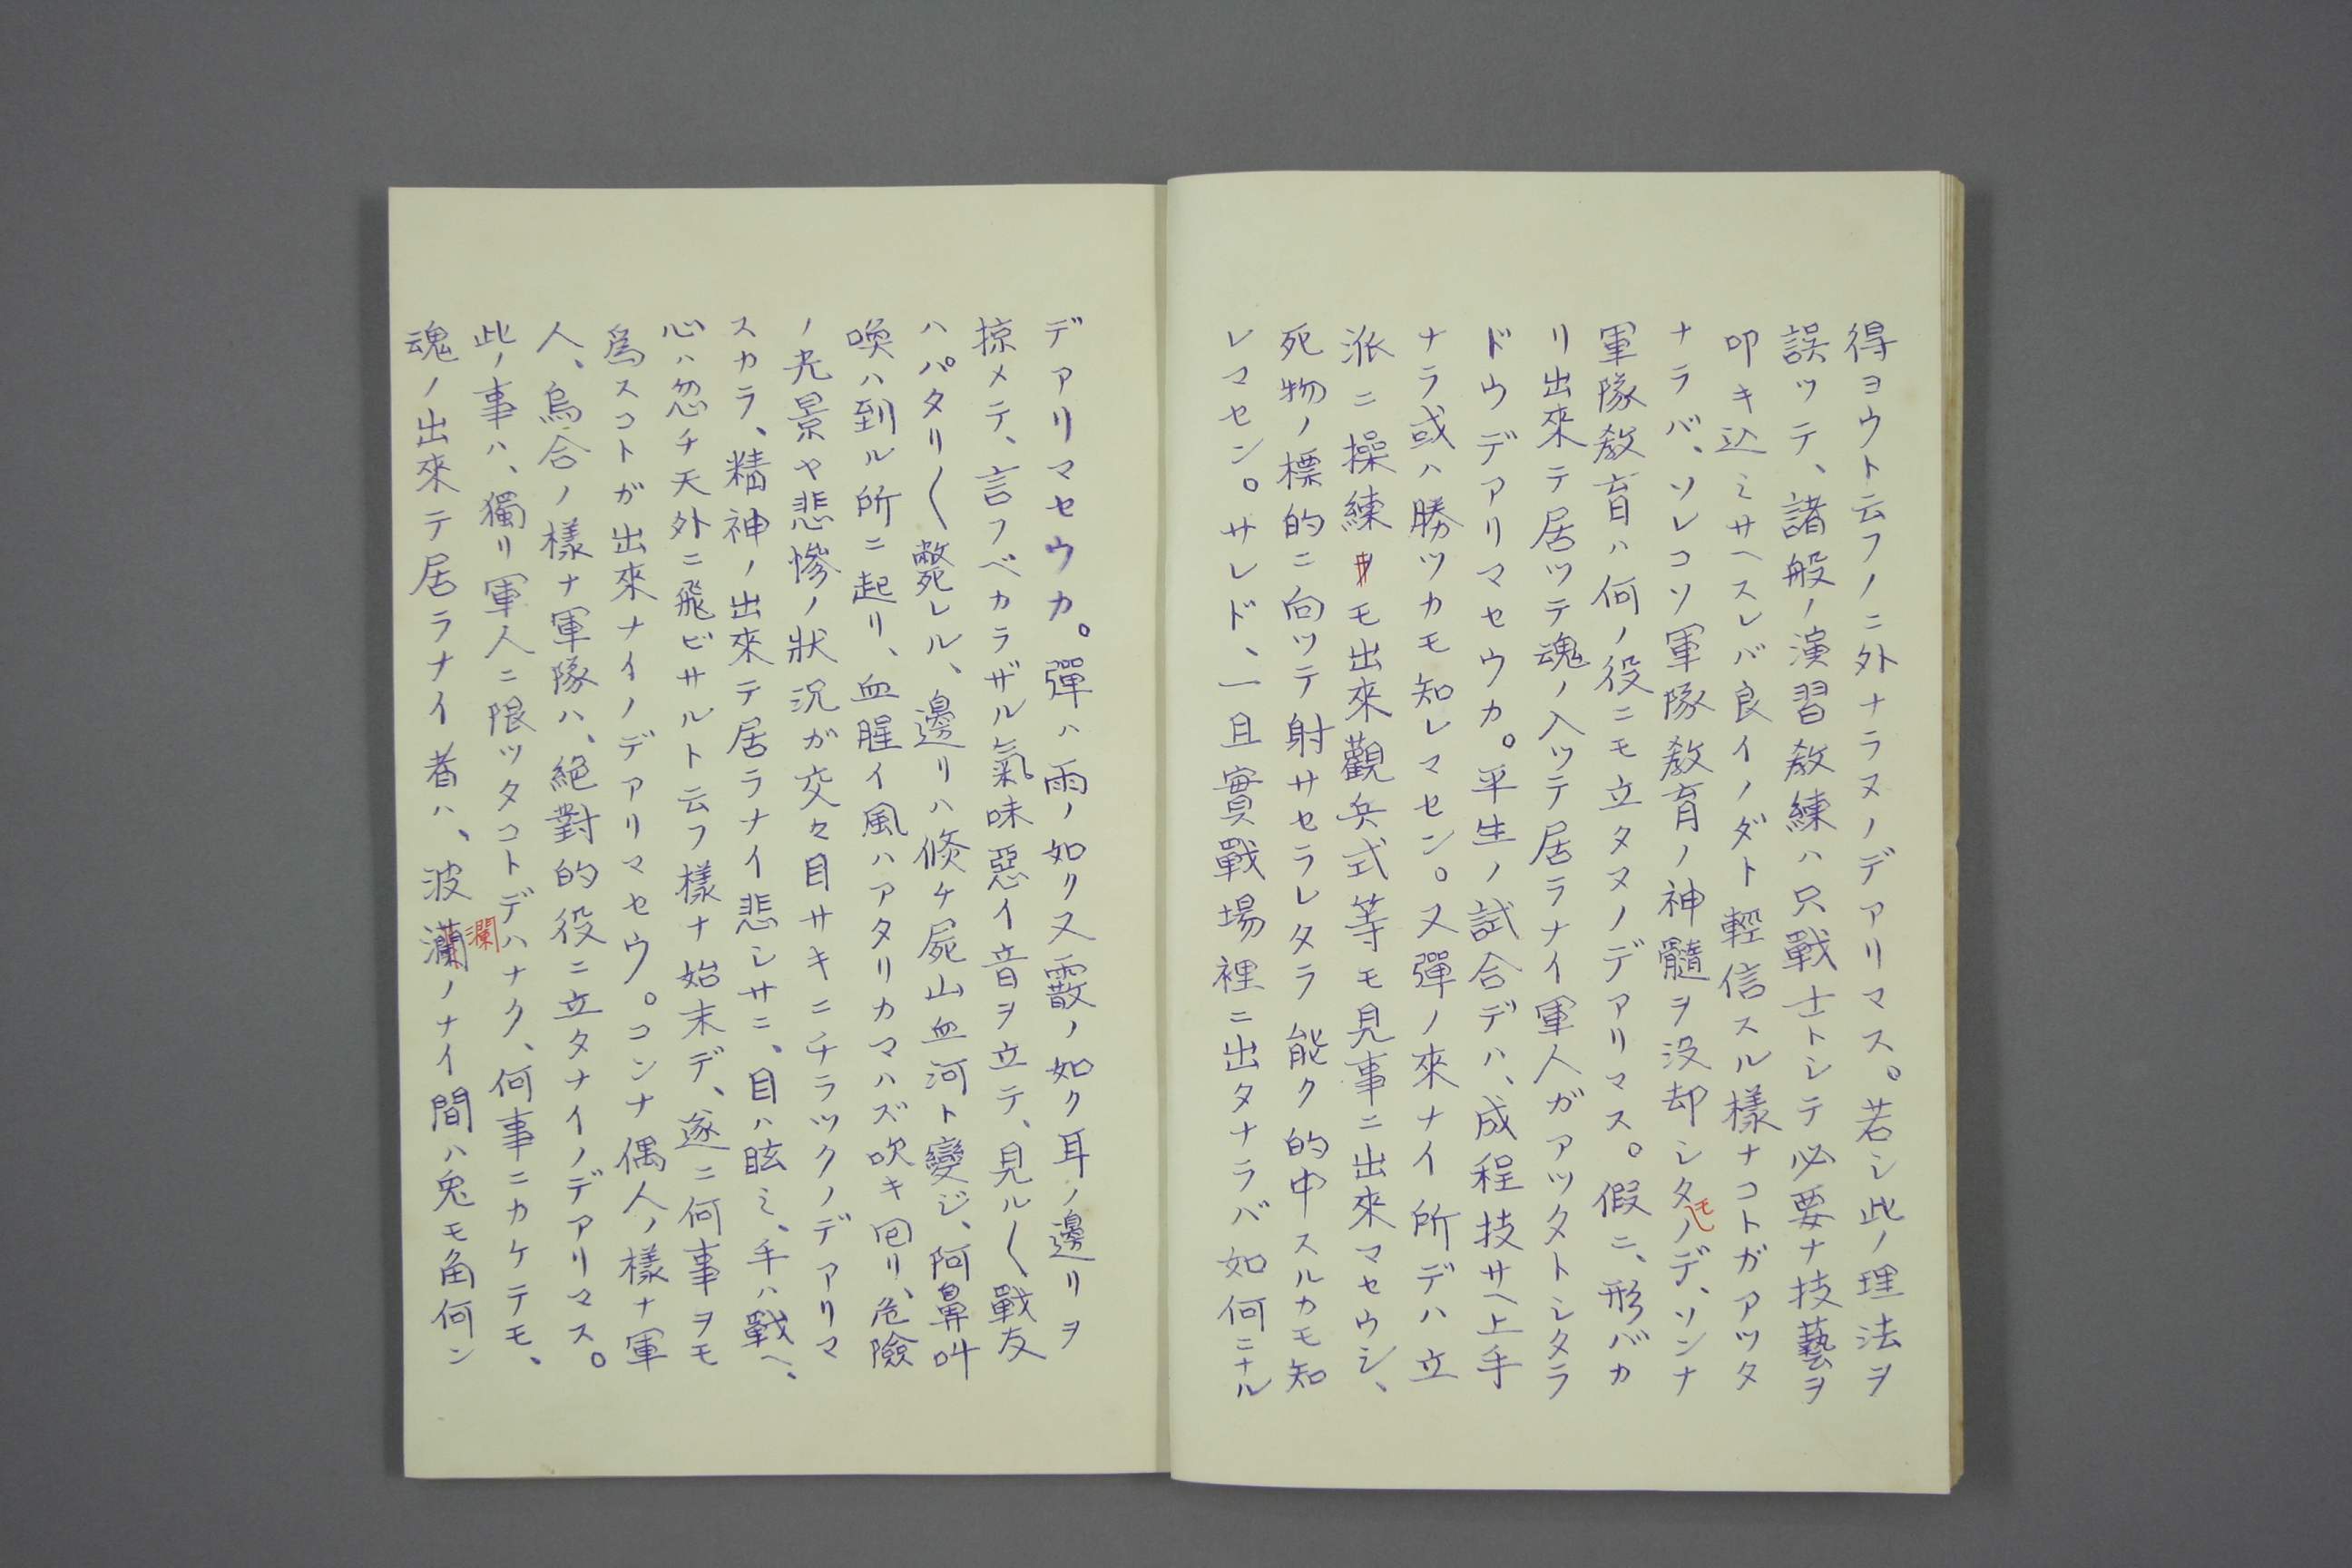 得ヨウト云フノニ外ナラヌノデアリマス。若シ此ノ理法ヲ
誤ッテ、諸般ノ演習教練ハ只戰士トシテ必要ナ技藝ヲ
叩キ込ミサヘスレバ良イノダト輕信スル様ナコトガアッタ
ナラバ、ソレコソ軍隊教育ノ神髓ヲ没却シタモノデ、ソンナ
軍隊教育ハ何ノ役ニモ立タヌノデアリマス。假ニ、形バカ
リ出來テ居ッテ魂ノ入ッテ居ラナイ軍人ガアッタトシタラ
ドウデアリマセウカ。平生ノ試合デハ、成程技サヘ上手
ナラ或ハ勝ツカモ知レマセン。又彈ノ來ナイ所デハ立
派ニ操練モ出來觀兵式等モ見事ニ出來マセウシ、
死物ノ標的ニ向ッテ射サセラレタラ能ク的中スルカモ知
レマセン。サレド、一旦實戰場裡ニ出タナラバ如何ニナル
デアリマセウカ。彈ハ雨ノ如ク又霰ノ如ク耳ノ邊リヲ
掠メテ、言フベカラザル氣味惡イ音ヲ立テ、見ル〱戰友
ハパタリ〱斃レル、邊リハ倏チ屍山血河ト變ジ、阿鼻叫
喚ハ到ル所ニ起リ、血腥イ風ハアタリカマハズ吹キ囘リ、危險
ノ光景ヤ悲慘ノ狀況ガ交々目サキニチラツクノデアリマ
スカラ、精神ノ出來テ居ラナイ悲シサニ、目ハ眩ミ、手ハ戰ヘ、
心ハ忽チ天外ニ飛ビサルト云フ様ナ始末デ、遂ニ何事ヲモ
爲スコトガ出來ナイノデアリマセウ。コンナ偶人ノ樣ナ軍
人、烏合ノ樣ナ軍隊ハ、絕對的役ニ立タナイノデアリマス。
此ノ事ハ、獨リ軍人ニ限ッタコトデハナク、何事ニカケテモ、
魂ノ出來テ居ラナイ者ハ、波瀾ノナイ間ハ兎モ角何ン